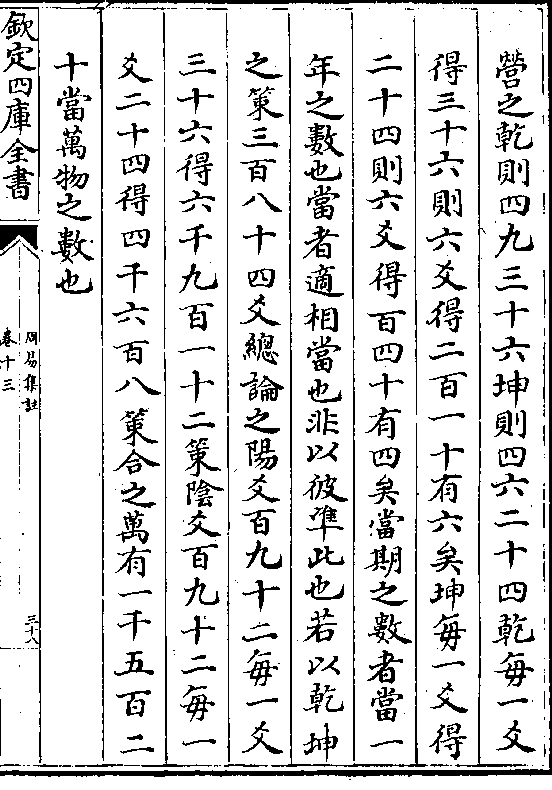 營之乾則四九三十六坤則四六二十四乾每一爻
得三十六則六爻得二百一十有六矣坤每一爻得
二十四則六爻得百四十有四矣當期之數者當一
年之數也當者適相當也非以彼準此也若以乾坤
之策三百八十四爻總論之陽爻百九十二每一爻
三十六得六千九百一十二策陰爻百九十二每一
爻二十四得四千六百八策合之萬有一千五百二
十當萬物之數也
欽定四庫全書
周易集註
卷十三
三十八